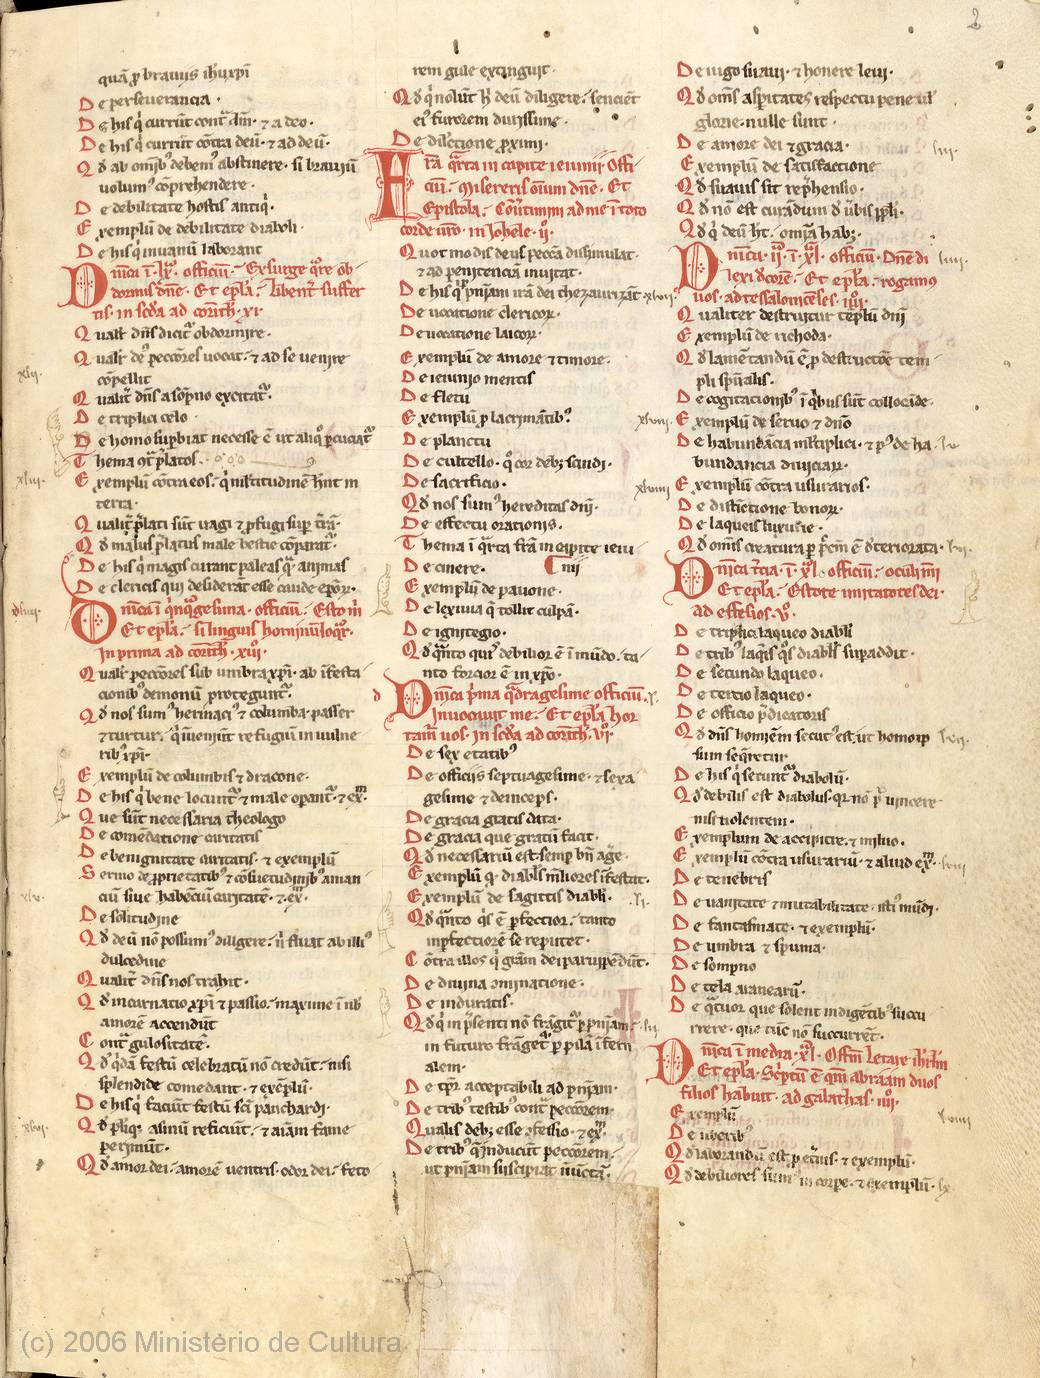 2
quã ꝑ brauiis ih'u xp̃i
De perseuerancia ·
De his q̇ currũt cont̃ dñm · ⁊ a deo ·
De his q̇ currũt cõtra deũ · ⁊ ad deũ ·
Qđ ab om̃ib' debem' abstinere · si brauiũ
uolum' cõprehendere ·
De debilitate hostis antiq̇ ·
Exemplũ de debilitate diaboli ·
De his q̇ inuanũ laborant
Dñica ĩ · lx̃ · officiũ · Exsurge q̃re ob
dormis dñe · Et ep̃la · Libent̃ suffer
tis · in scđa ad corĩth · xi ·
Qualit̃ dñs dicit̃ obdormire ·
Qualit̃ de' pecc̃ores uocat · ⁊ ad se uenire
cõpellit
Qualit̃ dñs a sõpno excitat̃ ·
De triplici celo ·
De homo supbiat necesse ẽ ut aliq̊ ꝑcuciat̃
Thema 9t̃ p̃latos ·
Exemplũ cõtra eos · q̇ m̃ltitudinẽ hñt in
terra ·
Qualit̃ p̃lati sũt uagi ⁊ ꝓfugi sup t̃rã ·
Qđ malus p̃latus male bestie cõparat̃ ·
De his q̇ magis curant paleas q̃ · animas
De clericis qui desiderãt esse
Dñica ĩ q̇nq̃gesima · officiũ · Esto m̃
Et ep̃la · si linguis hominũ loq̃r ·
In prima ad corĩth · xiii ·
Qualit̃ pecc̃ores sub umbra xp̃i · ab ĩfesta
cionib' demonũ protegunt̃ ·
Qđ nos sum' herinaci' ⁊ columba · passer
⁊ turtur · q̇ inueniũt refugiũ in uulne
rib' xp̃i ·
Exemplũ de columbis ⁊ dracone ·
De his q̇ bene locunt̃ ⁊ male opant̃ · ⁊ ex̃ ·
Que sũt necessaria theologo
De comẽdatione caritatis
De benignitate caritatis · ⁊ exemplũ
Sermo de ꝓprietatib' ⁊ cõsuetudinib' aman
ciũ siue habẽciũ caritatẽ · ⁊ ex̃ ·
De solitudine
Qđ deũ nõ possum' diligere · n̊ fluat ab illi'
dulcedine
Qualit̃ dñs nos trahit ·
Qđ incarnatio xp̃i ⁊ passio · maxime ĩ nob̃
amorẽ accendũt
Cont̃ gulositatẽ ·
Qđ q̇dã festũ celebratũ nõ credũt · nisi
splendide comedant · ⁊ exẽplũ ·
De his q̇ faciũt festũ sc̃i panchardi ·
Qđ pliq̃ · asinũ reficiũt · ⁊ aĩam fame
perimũt ·
Qđ amor dei · amorẽ uentris · odor dei · feto
rem gule extinguit ·
Qđ q̇ nolũt h̃ deũ diligere · sencient
ei' furorem durissime ·
De dilectione ꝓximi ·
Fr̃ia q̃rta in capite ieiunii Offi
ciũ · Misereris omĩum dñe · Et
Epistola · Cõũtimini ad me ĩ toto
corde ur̃o · in Johele · ij̊ ·
Quot modis deus pecc̃a dissimulat ·
⁊ ad penitencia inuitat ·
De his q̇ ꝑ pñiam irã dei thezaurizãt ·
De uocatione clericor ·
De uocatione laicor ·
Exemplũ de amore ⁊ timore ·
De ieiunio mentis
De fletu
Exemplũ ꝓ lacrimãtib' ·
De planctu
De cultello · q̊ cor deb; scindi ·
De sacrificio ·
Qđ nos sum' hereditas dñi ·
De effectu orationis ·
Thema ĩ q̃rta fr̃ia in capite ieiu
De cinere · nii
Exemplũ de pauone ·
De lexiuia q̃ tollit culpã ·
De ignitegio ·
Qđ q̃nto qui' debilior ẽ ĩ mũdo · ta
nto forcior ẽ in xp̃o ·
Dñica p̃ma q̃dragesime officiũ
Inuocauit me · Et ep̃la hor
tam̃ uos · in scđa ad corĩth · vi ·
De sex etatib'
De officiis septuagesime · ⁊ sexa
gesime ⁊ deinceps ·
De gracia gratis data ·
De gracia que gratũ facit ·
Qđ necessariũ est semp bñ ag̃e ·
Exemplũ q · diabl's m̃liores ĩfestat ·
Exemplũ de sagittis diabl'i ·
Qđ q̃nto q̇s ẽ ꝑfectior · tanto
inpfectiorẽ se reputet ·
Cõtra illos q̇ gr̃am dei paruipẽdũt ·
De diuina cominatione ·
De induratis ·
Qđ q̇ in p̃senti nõ frãgit̃ ꝑ pñiam ·
in futuro frãget̃ ꝑ pilã ĩfern
alem ·
De tp̃r acceptabili ad pñiam ·
De trib' testib' cont̃ pecc̃orem ·
Qualis deb; esse 9fessio · ⁊ ex̃ ·
De trib' q̃ inducũt pecc̃orem ·
ut pñiam suscipiat
De iugo suaui · ⁊ honere leui ·
Qđ om̃s asperitates respectu pene ul'
glorie · nulle sunt ·
De amore dei ⁊ gracia ·
Exemplũ de satisfactione
Qđ suauis sit rep̃hensio ·
Qđ nõ est curãdum đ ũbis ppl'i ·
Qđ q̇ deũ ht̃ · om̃ia hab; ·
Dñica · ij̊ · ĩ · xl̃ · officiũ · Dñe di
lexi đcorẽ · Et ep̃la · rogamus
uos · ad tessalonicẽses · iiij̊ ·
Qualiter destruitur tẽplũ dñi
Exemplũ de richoda ·
Qđ lamẽtandũ ẽ ꝓ destructiõe tem
pli sp̃ualis ·
De cogitacionib' ĩ q̇bus sũt collocãde ·
Exemplũ de seruo ⁊ dño
De habundãcia m̃ltiplici · ⁊ p' de ha
bundancia diuiciar ·
Exemplũ cõtra usurarios ·
De distictione bonor ·
De laqueis luxurie ·
Qđ omĩs creatura ꝑ p̃cm̃ ẽ đteriorata ·
Dñica t̃cia · ĩ · xl̃ · officiũ · oculi m̃i
Et ep̃la · Estote imitatores dei ·
ad effesios · v̊ ·
De triplici laqueo diabl'i
De trib' laq̃is q̊s diabl's supaddit ·
De secundo laqueo ·
De tercio laqueo ·
De officio p̃dicatoris
Qđ dñs hom̃iem secut' est · ut homo ip
sum seq̃retur ·
De his q̇ secunt̃ diabolũ ·
Qđ debilis est diabolus · qr nõ p̃ uincere
nisi uolentem ·
Exemplum de accipitre · ⁊ miluo ·
Exemplũ cõtra usurariũ · ⁊ aliud ex̃ ·
De tenebris
De uanitate ⁊ mutabilitate · isti' mũdi ·
De fantasmate · ⁊ exemplũ ·
De umbra ⁊ spuma ·
De sompno
De tela aranearũ ·
De q̃tuor que solent indigẽtib' succu
rrere · que tũc nõ succurrẽt ·
Dñica ĩ media · xl̃ · Offm̃ Letare ih'rl'm
Et ep̃la · Sc̃ptũ ẽ qm̃ abraam duos
filios habuit · ad galathas · iiij̊ ·
Exemplũ
De uberib'
Qđ laborandũ est · ꝑ ec̃ius · ⁊ exemplũ ·
Qđ debiliores sum' in corpe · ⁊ exemplũ ·
(c) 2006 Ministério de Cultura